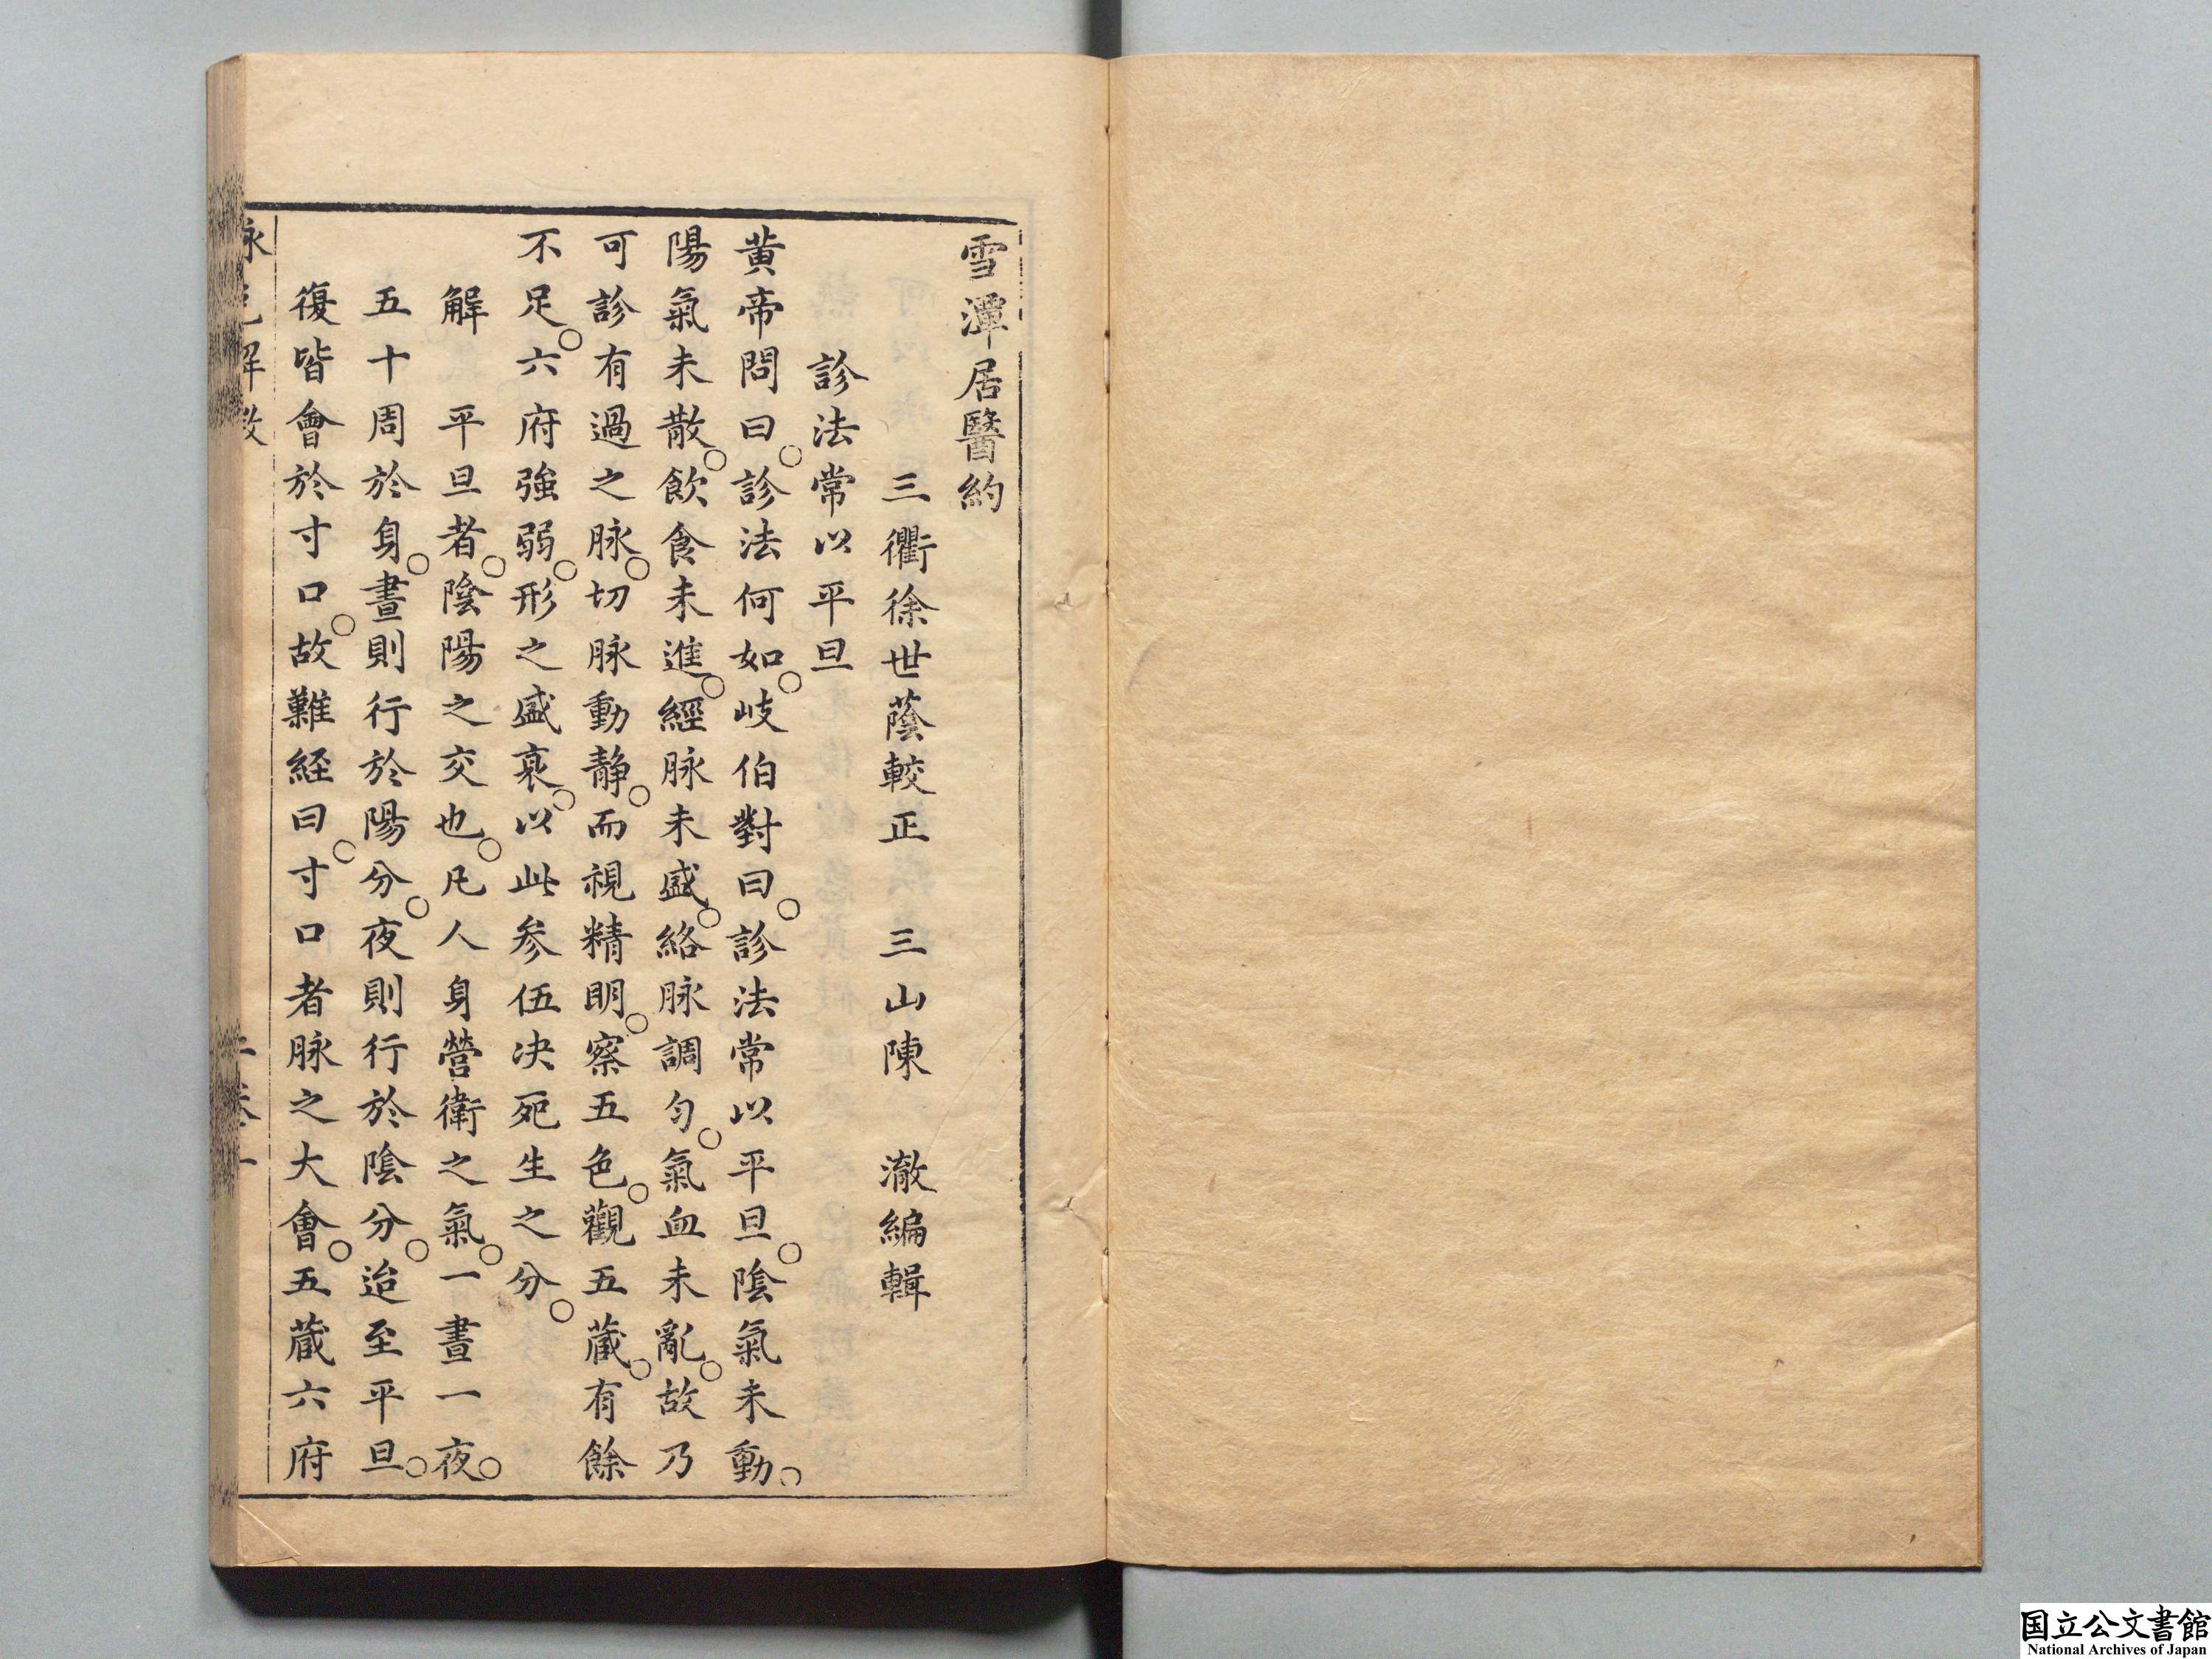 雪潭居醫約
三衢徐世蔭較正　三山陳　澈編輯
診法常以平旦
黄帝問曰○診法何如○岐伯對曰○診法常以平旦○陰氣未動○
陽氣未散○飲食未進○經脉未盛○絡脉調匀○氣血未亂○故乃
可診有過之脉○切脉動静○而視精明○察五色○觀五蔵○有餘
不足○六府強弱○形之盛衰○以此参伍决死生之分○
解　平旦者○陰陽之交也○凡人身營衛之氣○一晝一夜○
五十周於身○晝則行於陽分○夜則行於陰分○迨至平旦○
復皆會於寸口○故難経曰○寸口者脉之大會○五蔵六府
国立公文書館
National Archives of Japan